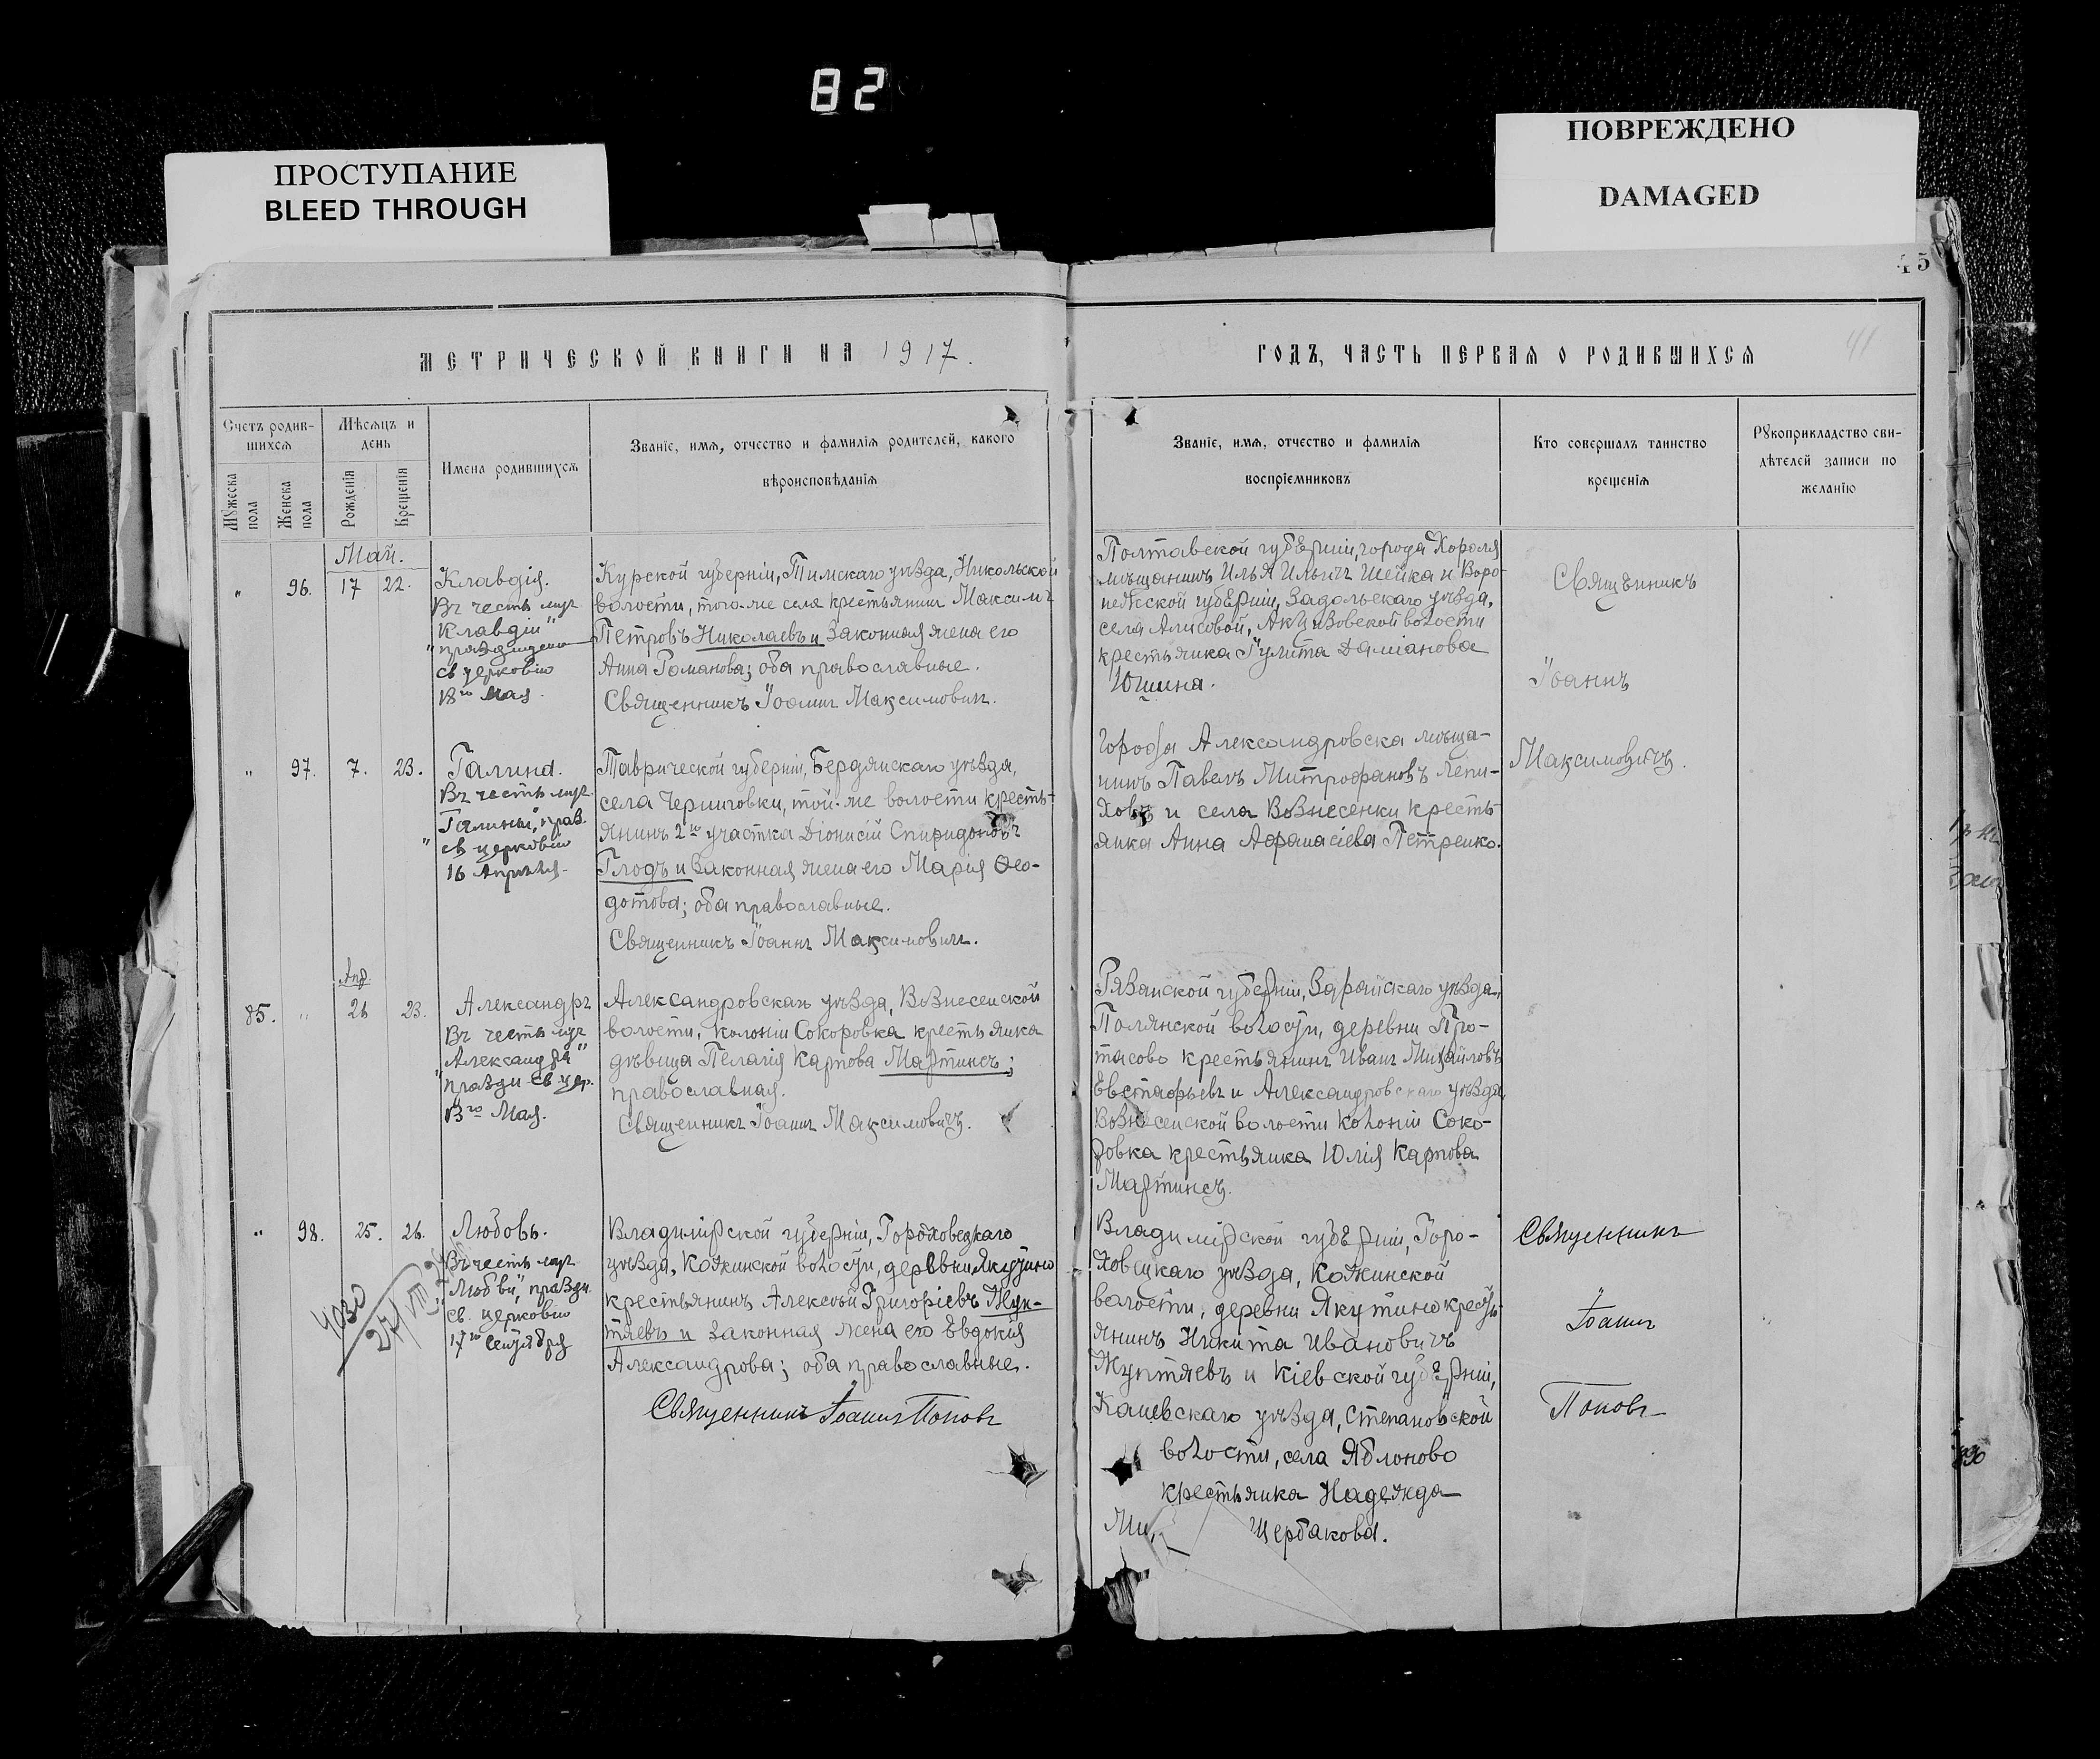 82
ПРОСТУПАНИЕ
BLEED THROUGH
ПОВРЕЖДЕНО
DAMAGED
45
41
МЕТРИЧЕСКОЙ КНИГИ НА 1917.
Счетъ родив-
шихся
Мѣсяцъ и
день
Мужеска
пола
Женска
пола
Рожденія
Крещенія
Имена родившихся
Званіе, имя, отчество и фамилія родителей, какого
вѣроисповѣданія
Май.
" 96. 17 22.
Клавдія.
Въ честь муч.
Клавдіи"
"празднуемо
св церковію
18го Мая.
Курской губерніи, Тимскаго уѣзда, Никольской
волости, того-же села крестьянинъ Максимъ
Петровъ Николаевъ и законная жена его
Анна Романова; оба православные.
Священникъ Іоаннъ Максимовичъ.
" 97. 7. 23.
Галина.
Въ честь муч.
Галины", праз.
"св церковію
16 Апрѣля.
Таврической губерніи, Бердянскаго уѣзда,
села Черниговки, той-же волости кресть-
янинъ 2го участка Діонисій Спиридоновъ
Глодъ и законная жена его Марія Ѳео-
дотова; оба православные.
Священникъ Іоаннъ Максимовичъ.
Апр.
85. " 26 23.
Александръ
Въ честь муч.
Александра"
"праздн св цер.
13го Мая.
Александровскаго уѣзда, Вознесенской
волости, колоніи Сокоровка крестьянка
дѣвица Пелагія Карпова Мартинсъ;
православная.
Священникъ Іоаннъ Максимовичъ.
" 98. 25. 26.
Любовь.
Въ честь муч.
"Любви", праздн
св. церковію
17го Сентября
4030
27/VIII
Владимірской губерніи, Гороховецкаго
уѣзда, Кожинской волости, деревни Якутино
крестьянинъ Алексѣй Григоріевъ Жуп-
тяевъ и законная жена его Евдокія
Александрова; оба православные.
Священникъ Іоаннъ Поповъ
ГОДЪ, ЧАСТЬ ПЕРВАЯ О РОДИВШИХСЯ
Званіе, имя, отчество и фамилія
воспріемниковъ
Кто совершалъ таинство
крещенія
Рукоприкладство сви-
дѣтелей записи по
желанію
Полтавской губерніи, города Хороля
мѣщанинъ Илья Ильичъ Шейка и Воро-
нежской губерніи, Задонскаго уѣзда,
села Алисовой, волости
крестьянка Гулита Даміанова
Юшина.
Священникъ
Іоаннъ
Максимовичъ.
Города Александровска мѣща-
нинъ Павелъ Митрофановъ Лепи-
ховъ и села Вознесенки кресть-
янка Анна Афанасіева Петренко.
Рязанской губерніи, Зарайскаго уѣзда,
Полянской волости, деревни Про-
тасово крестьянинъ Иванъ Михайловъ
Евстафьевъ и Александровскаго уѣзда,
Вознесенской волости колоніи Соко-
ровка крестьянка Юлія Карпова
Мартинсъ.
Владимірской губерніи, Горо-
ховецкаго уѣзда, Кожинской
волости, деревни Якутино кресть-
янинъ Никита Ивановичъ
Жуптяевъ и Кіевской губерніи,
Каневскаго уѣзда, Степановской
волости, села Яблоново
крестьянка Надежда
Щербакова.
Священникъ
Іоаннъ
Поповъ